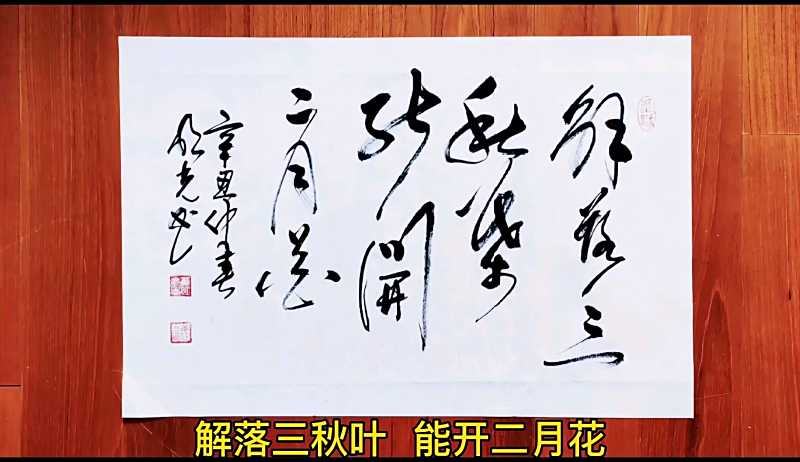 解落三
秋葉
能開
二月花
辛丑仲春
明光書
解落三秋叶 能开二月花